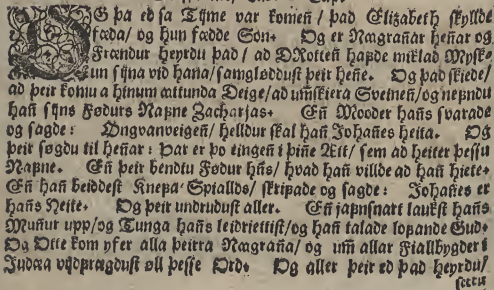 OG þa ed sa Tijme var komen / þad Elizabeth skyllde
fæda / og hun fædde Son. Og er Nægrañar heñar og
Frændur heyrdu þad / ad DRotten hafde miklad Mysk-
un sijna vid hana / samgløddust þeir heñe. Og þad skiede /
ad þeir komu a hinum ættunda Deige / ad umskiera Sveineñ / og nefndu
hañ sijns Fødurs Nafne Zacharjas. Eñ Mooder hañs svarade
og sagde: Øngvanveigeñ / helldur skal hañ Johañes heita. Og
þeir søgdu til heñar: Þar er þo eingeñ i þiñe Ætt / sem ad heiter þessu
Nafne. Eñ þeir bendtu Fødur hñs / hvad hañ villde ad hañ hiete.
Eñ hañ beiddest Knefa-Spiallds / skrifade og sagde: Johañes er
hañs Heite. Og þeir undrudust aller. Eñ jafnsnart laukst hañs
Muñur upp / og Tunga hañs leidriettist / og hañ talade lofande Gud.
Og Otte kom yfer alla þeirra Nægraña / og um allar Fiallbygder i
Judæa vijdfrægdust øll þesse Ord. Og aller þeir ed þad heyrdu /
settu